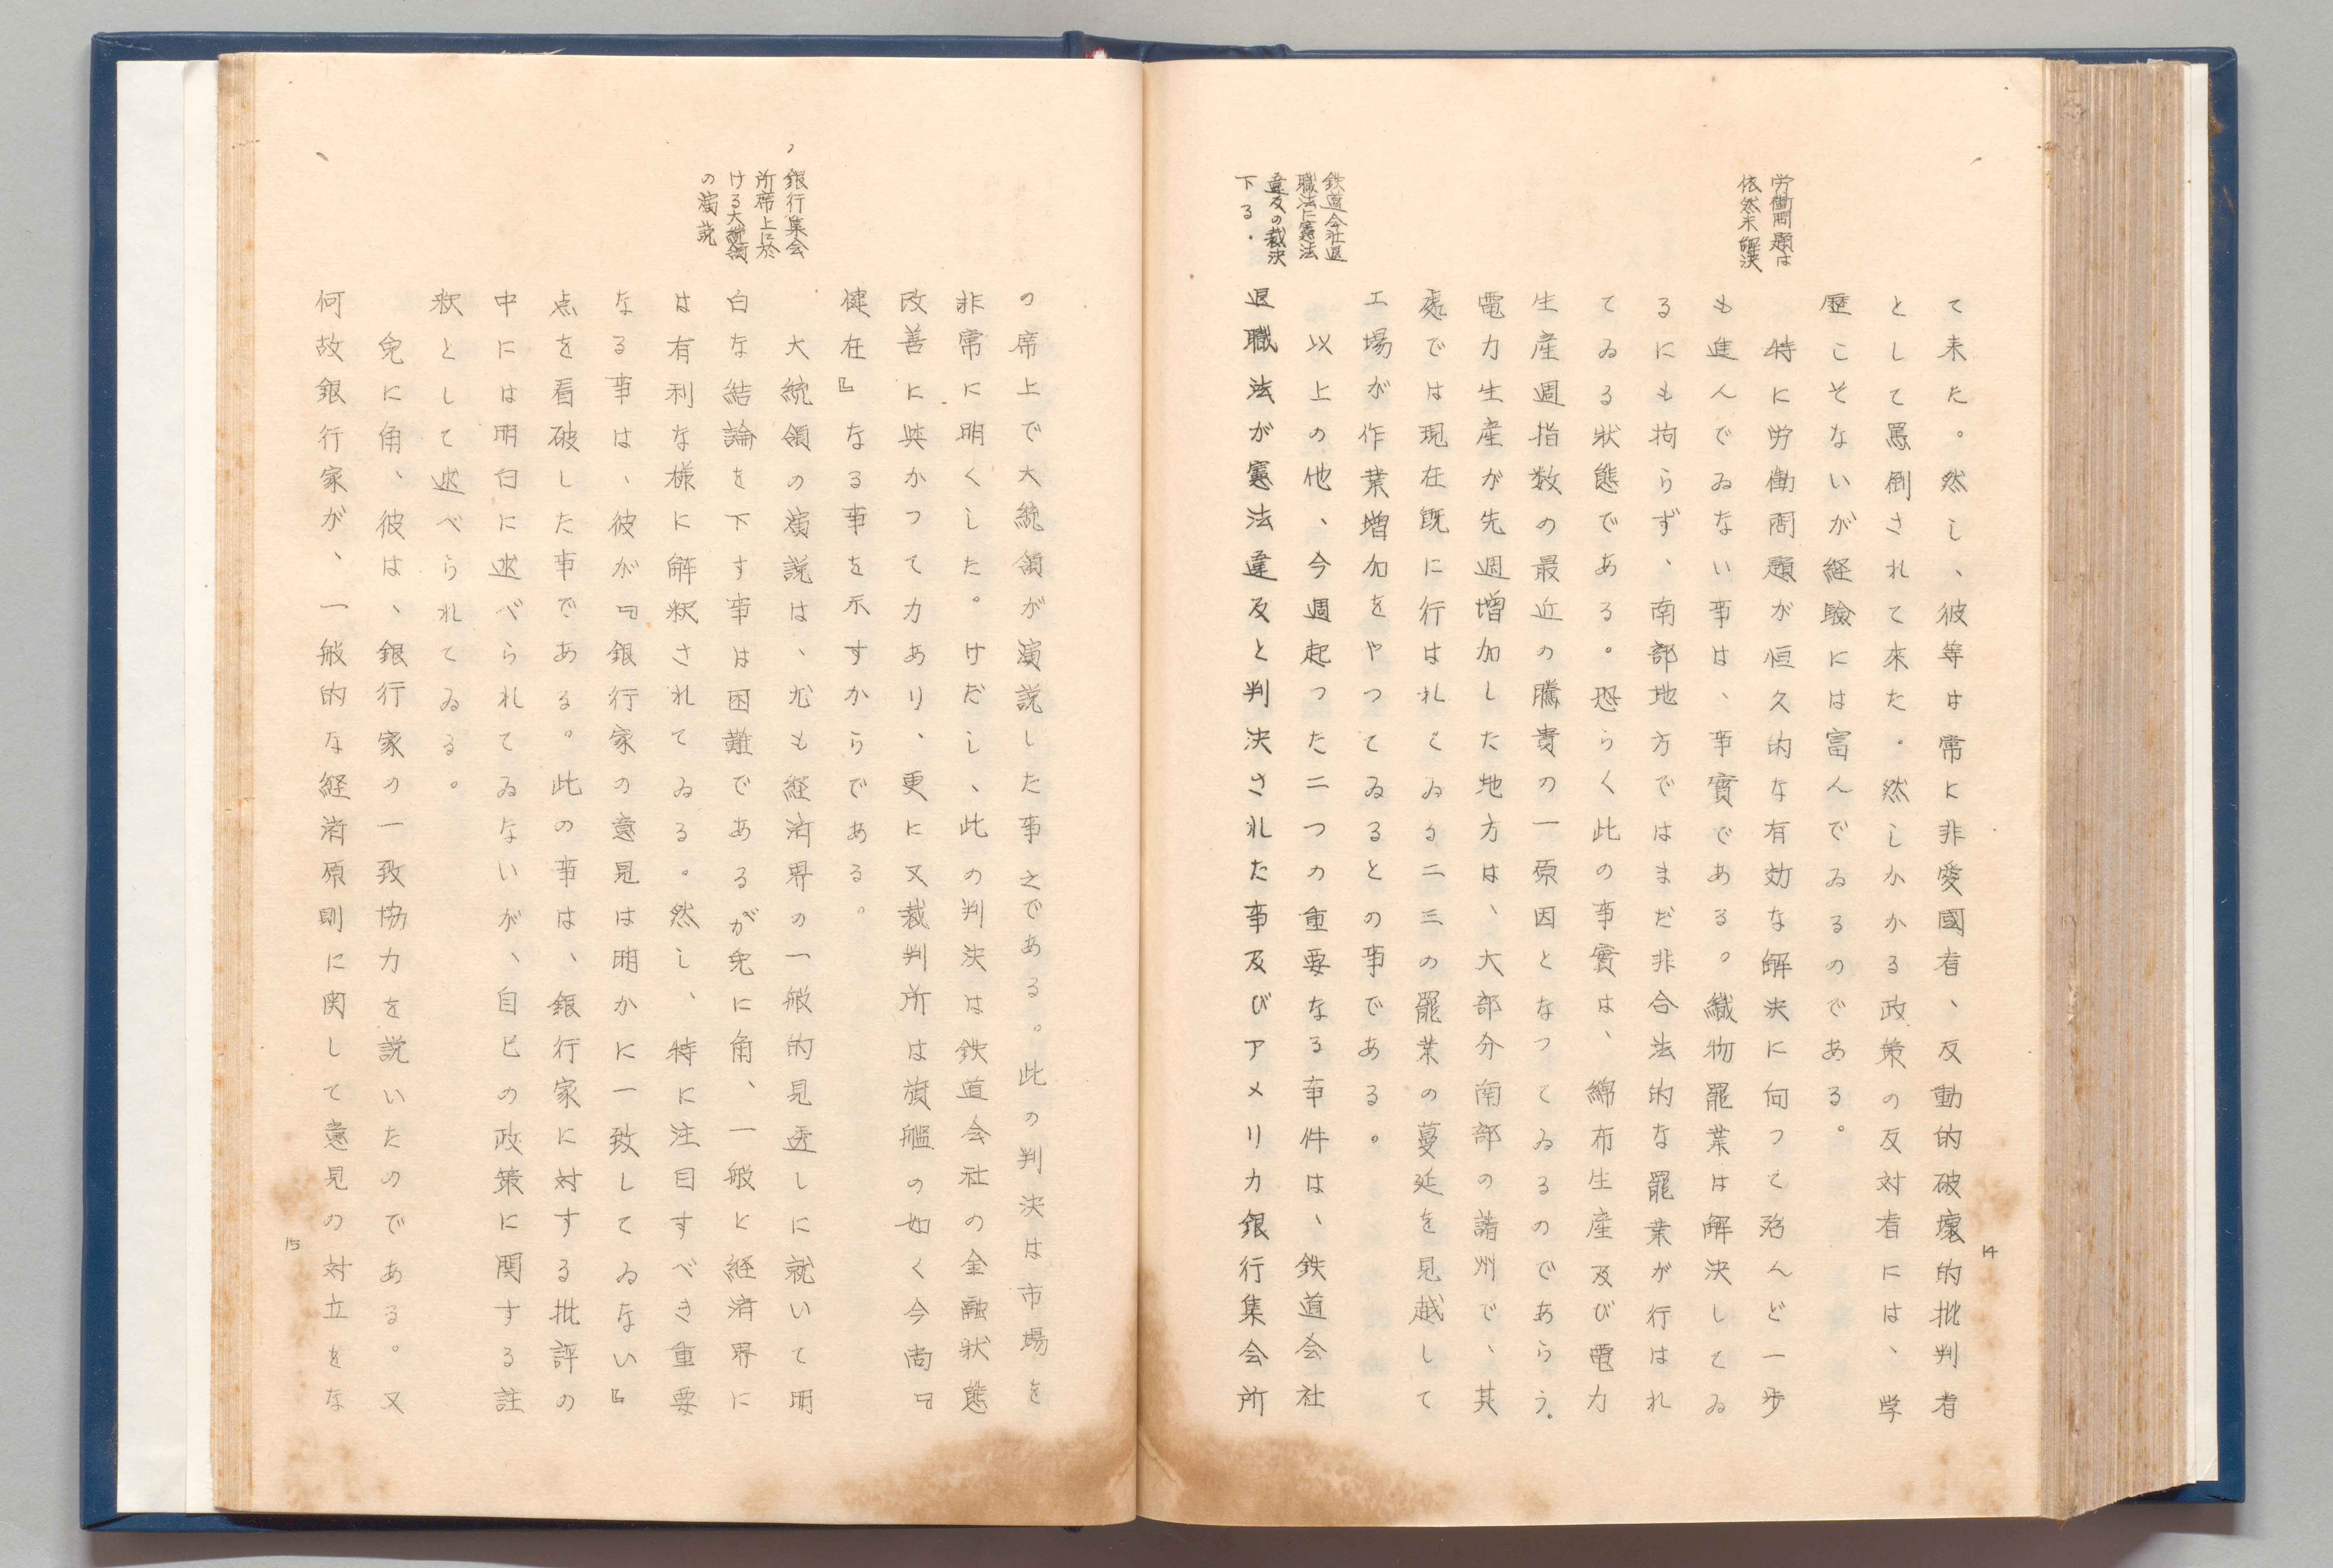 14
労働問題は
依然未解決
鉄道会社退
職法に憲法
違反の裁決
下る．
て来た。然し、彼等は常に非愛國者、反動的破壊的批判者
として罵倒されて来た．然しかかる政策の反対者には、学
歴こそないが経験には富んでゐるのである。
特に労働問題が恒久的な有効な解決に向つて殆んど一歩
も進んでゐない事は、事實である。織物罷業は解決してゐ
るにも拘らず、南部地方ではまだ非合法的な罷業が行はれ
てゐる狀態である。恐らく此の事實は、綿布生産及び電力
生産週指数の最近の騰貴の一原因となつてゐるのであらう．
電力生産が先週増加した地方は、大部分南部の諸州で、其
處では現在既に行はれてゐる二三の罷業の蔓延を見越して
工場が作業増加をやつてゐるとの事である。
以上の他、今週起つた二つの重要なる事件は、鉄道会社
退職法が憲法違反と判決された事及びアメリカ銀行集会所
銀行集会
所席上に於
ける大統領
の演説
の席上で大統領が演説した事之である。此の判決は市場を
非常に明くした。けだし、此の判決は鉄道会社の金融狀態
改善に與かつて力あり、更に又裁判所は旗艦の如く今尚『
健在』なる事を示すからである。
大統領の演説は、尤も経済界の一般的見透しに就いて明
白な結論を下す事は困難であるが兔に角、一般に経済界に
は有利な様に解釈されてゐる。然し、特に注目すべき重要
なる事は、彼が『銀行家の意見は明かに一致してゐない』
点を看破した事である。此の事は、銀行家に対する批評の
中には明白に述べられてゐないが、自己の政策に関する註
釈として述べられてゐる。
兔に角、彼は、銀行家の一致協力を説いたのである。又
何故銀行家が、一般的な経済原則に関して意見の対立をな
15